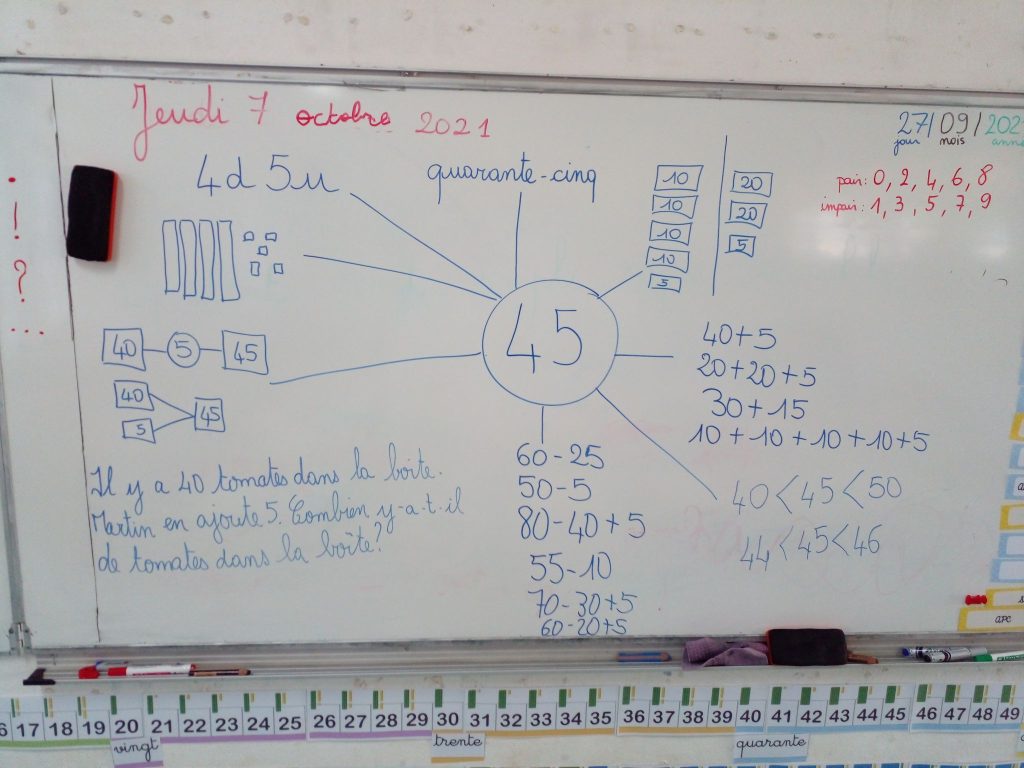 Jeudi 7 octobre 2021
27/09/202
jour mois
pair: 0, 2, 4, 6, 8
impair: 1, 3, 5, 7, 9
!
?
...
4d 5u
quarante-cinq
10
10
10
10
5
20
20
5
45
40 5 45
40
5
45
40+5
20+20+5
30+15
10+10+10+10+5
Il y a 40 tomates dans la boite.
Martin en ajoute 5. Combien y-a-t-il
de tomates dans la boîte?
60-25
50-5
80-40+5
55-10
70-30+5
60-20+5
40<45<50
44<45<46
arc
6 17 18 19 20 21 22 23 24 25 26 27 28 29 30 31 32 33 34 35 36 37 38 39 40 41 42 43 44 45 46 47 48 49
vingt trente quarante